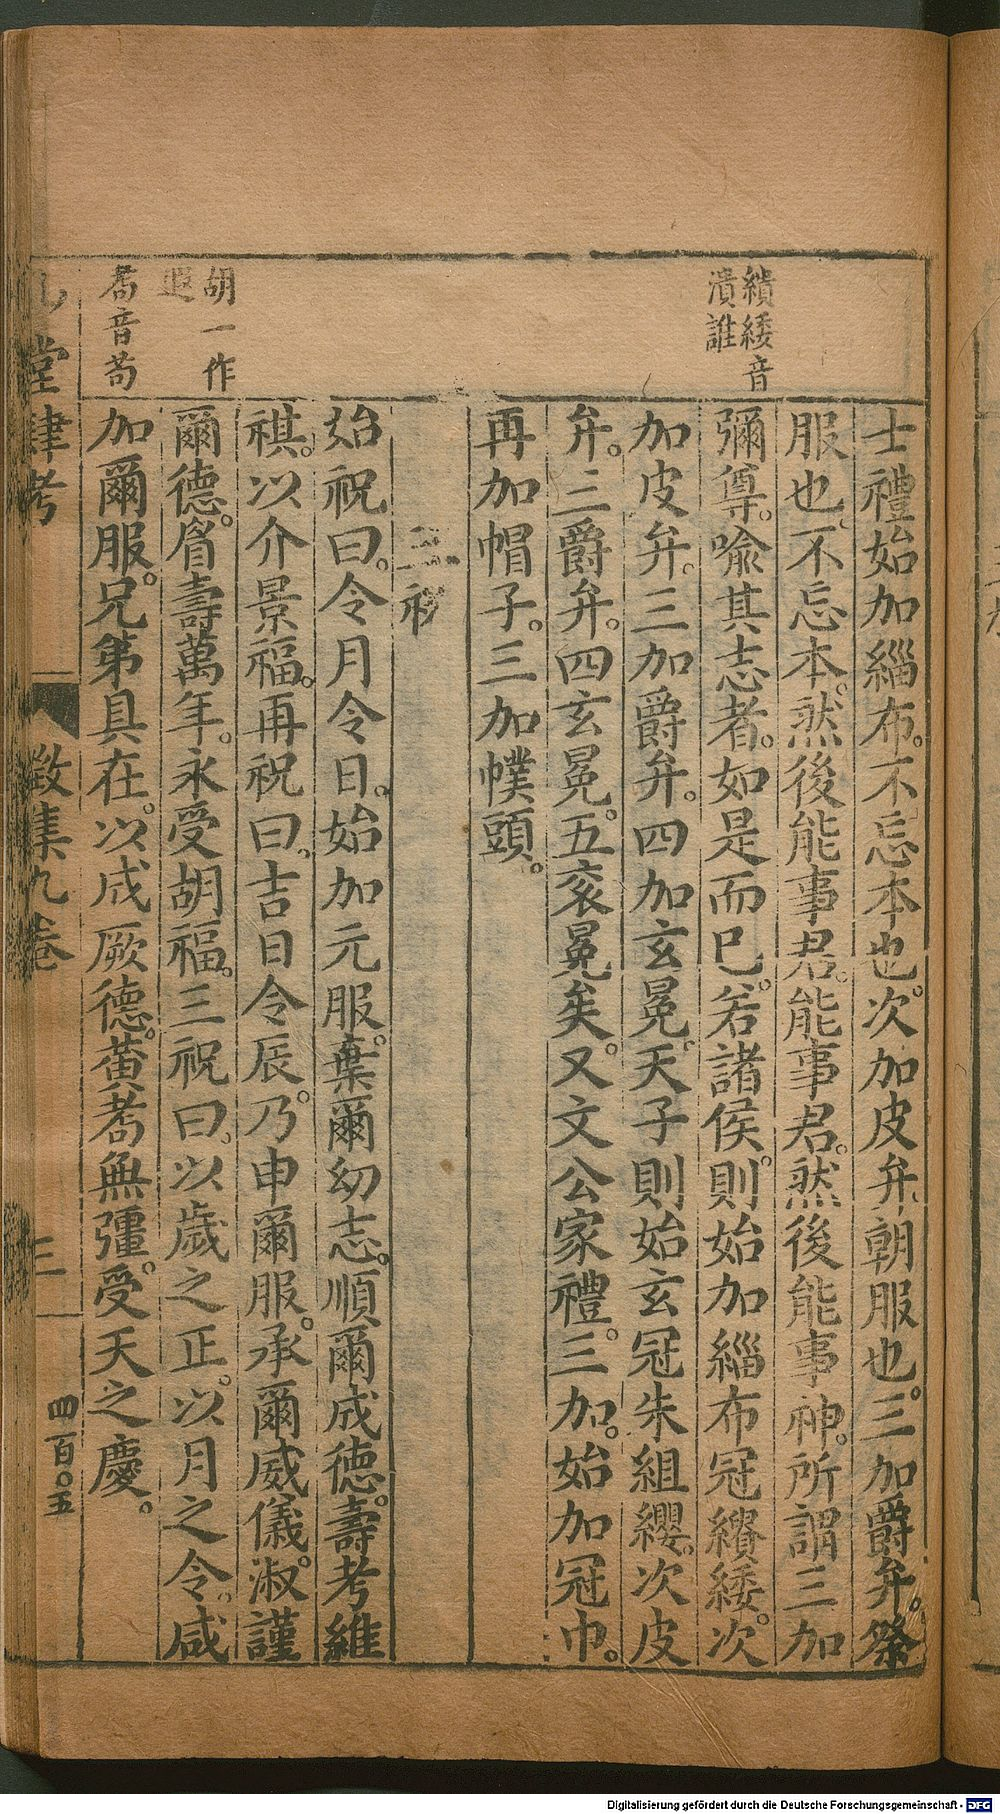 繢緌音
潰誰
士禮始加緇布。不忘本也。次加皮弁。朝服也。三加爵弁。祭
服也。不忘本。然後能事君。能事君。然後能事神。所謂三加
彌尊。喩其志者。如是而已。若諸侯。則始加緇布冠繢緌。次
加皮弁。三加爵弁。四加玄冕。天子則始玄冠朱組纓。次皮
弁。三爵弁。四玄冕。五衮冕矣。又文公家禮。三加。始加冠巾。
再加帽子。三加幞頭。
三祝
胡一作
遐
耇音苟
始祝曰。令月令日。始加元服。棄爾幼志。順爾成徳。壽考維
祺。以介景福。再祝曰。吉日令辰。乃申爾服。承爾威儀。淑謹
爾德。眉壽萬年。永受胡福。三祝曰。以歲之正。以月之令。咸
加爾服。兄弟具在。以成厥德。黃耇無彊。受天之慶。
堂肆考
徵集九卷
三
四百〇五
Digitalisierung gefördert durch die Deutsche Forschungsgemeinschaft - DFG